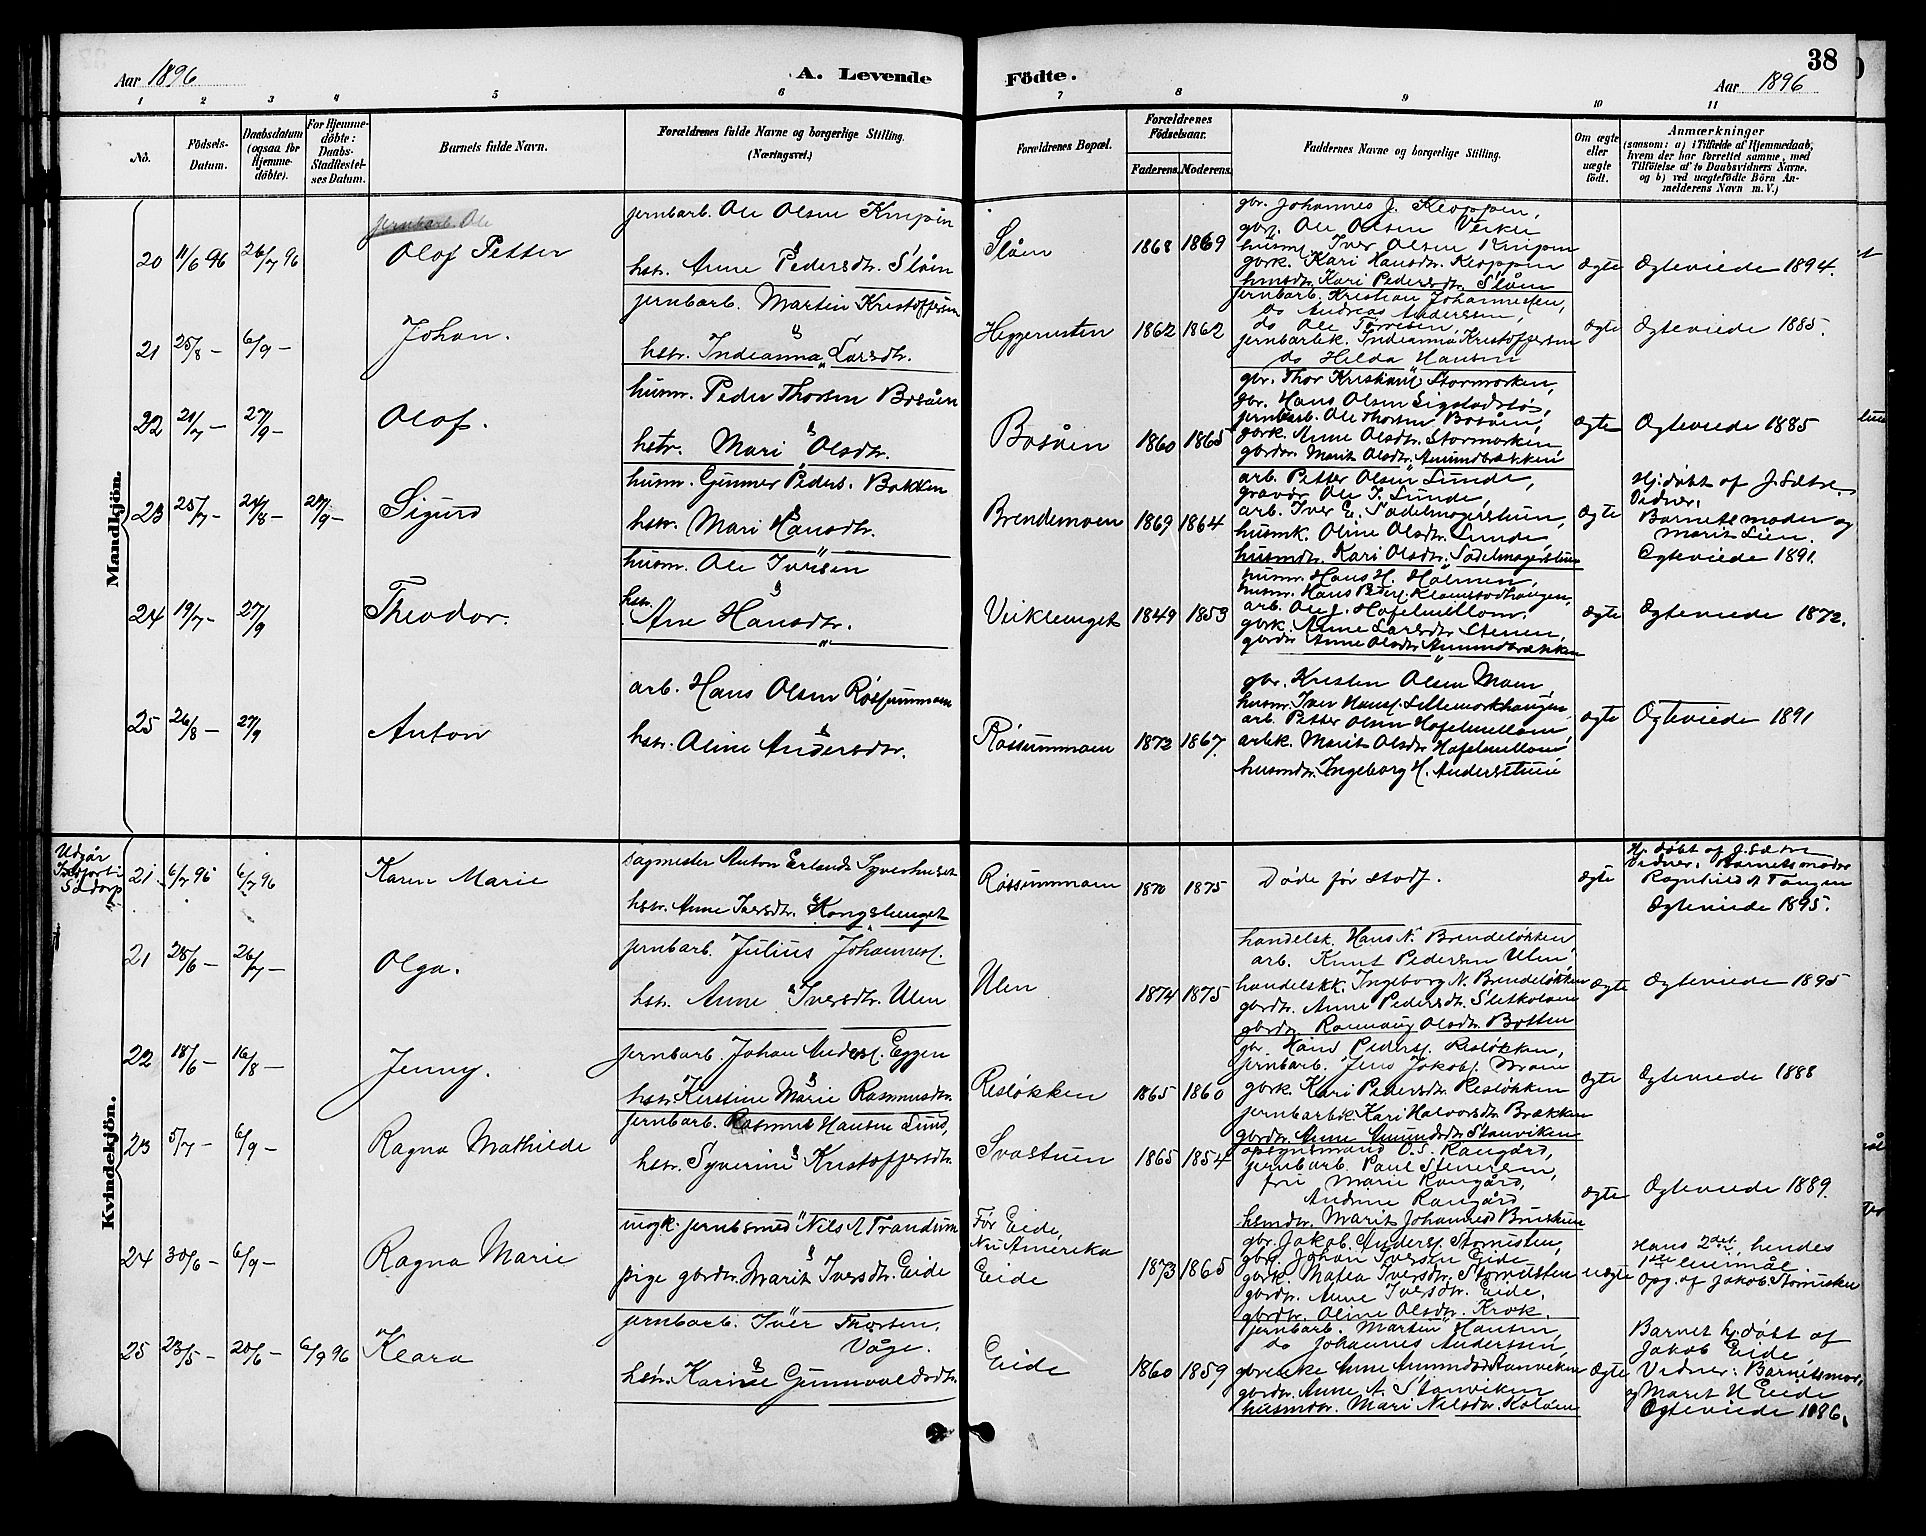 Aar 1896
A. Levende Födte.
38
Aar 1896
1 2 3 4 5 6 7 8 9 10 11
No.
Födsels-Datum.
Daabsdatum (ogsaa for Hjemme-döbte).
For Hjemme-döbte: Daabs-Stadfestel-ses Datum.
Barnets fulde Navn.
Forældrenes fulde Navne og borgerlige Stilling. (Næringsvei.)
Forældrenes Bopæl.
Forældrenes Födselsaar.
Faderens. Moderens.
Faddernes Navne og borgerlige Stilling.
Om ægte eller uægte født.
Anmærkninger
(saasom: a) i Tilfælde af Hjemmedaab,
hvem der har forrettet samme, med
Tilföielse af to Daabsvidners Navne.
og b) ved uægtefödte Börn An-
melderens Navn m. V.)
Mandkjön.
jernbarb. Ole
20 11/6 96 26/7 96 Olof Petter
jernbarb. Ole Olsen Knipen
&
hstr. Anne Pedersdtr. Slåen
Slåen 1868 1869
gbr. Johannes J. Kloppen,
gbsf. Ole Olsen Verken
husmf. Iver Olsen Knipen
gbrk. Kari Hansdtr. Kloppen
hmsdtr. Kari Pedersdtr. Slåen
Ægte Ægteviede 1894.
21 25/8 – 6/9 – Johan.
jernbarb. Martin Kristoffersen
&
hstr. Indianna Larsdtr.
Heggerusten 1862 1862
jernbarb. Kristian Johannessen,
do Andreas Anderssen,
do Ole Torresen,
jernbarbk. Indianna Kristoffersen
do Hilda Hansen
Ægte Ægteviede 1885.
22 21/7 – 27/9 – Olof.
husm. Peder Thorsen Bosåen
&
hstr. Mari Olsdtr.
Bosåen 1860 1865
gbr. Thor Kristians. Stormorken,
gbr. Hans Olsen Sigstadstø,
jernbarb. Ole Thorsen Bosåen,
gbrk. Anne Olsdtr. Stormorken
gbrdtr. Marit Olsdtr. Amundbrækken
Ægte Ægteviede 1885
23 25/7 – 24/8 – 27/9 – Sigurd
husm. Gunner Peders. Bakken
&
hstr. Mari Hansdtr.
Brendemoen 1869 1864
arb. Petter Olsen Lunde,
gravør Ole J. Lunde,
arb. Iver E. Sadelmagerstuen,
husmk. Oline Olsdtr. Lunde
husmdtr. Kari Olsdtr. Sadelmagerstuen
Ægte
Hj. døbt af J. Sætre.
Vidner:
Barnets moder og
Marit Lien.
Ægteviede 1891.
24 19/7 – 27/9 Theodor.
husm. Ole Iversen
&
hstr. Ane Hansdtr.
Veiklenget 1849 1853
husm. Hans H. Holmen,
husm. Hans Peders. Klomstadhaugen,
arb. Ole J. Hofelmellom.
gbrk. Anne Larsdtr. Stenen,
gbrdtr Anne Olsdtr. Amundbrækken
Ægte Ægteviede 1872.
25 26/8 – 27/9 Anton
arb. Hans Olsen Røssummoen
&
hstr. Oline Andersdtr.
Røssummoen 1872 1867.
gbr. Kristen Olsen Moen,
husm. Iver Hans. Lillemorkhaugen
arb. Petter Olsen Hofelmellom,
arbk. Marit Olsdtr. Hofelmellom
husmdtr. Ingeborg H. Andersstuen
Ægte Ægteviede 1891
Kvindekjön.
Udgår
Indført i
Sødorp
21. 6/7 96 6/7 96 Karen Marie
sagmester Anton Erlands. Syverhuset
&
hstr. Anne Iversdtr. Kongslunget
Røssummoen 1870 1875
Døde før stadf.
Ægte
Hj. døbt af J. Sætre
Vidner: Barnets moder
Ragnhild A Tangen
Ægteviede 1895.
21 28/6 – 26/7 – Olga.
jernbarb. Julius Johannes.
&
hst. Anne Iversdtr. Ulen
Ulen 1874 1875
handelsk. Hans N. Brendeløkken,
arb. Knut Pedersen Ulen,
handelskk. Ingeborg N. Brendeløkken
gbrdtr. Anne Pedersdtr. Sletkolain
gbrdtr. Rønnaug Olsdtr. Botten
Ægte Ægteviede 1895
22 18/6 – 16/8 – Jenny.
jernbarb. Johan Anders. Eggen
&
hstr. Kerstine Marie Rasmusdtr.
Resløkken 1865 1860
gbr. Hans Peders. Resløkken,
jernbarb. Jens Jakobs. Moen
gbrk. Kari Pedersdtr Resløkken
jernbarbk. Kari Halvorsdtr. Brækken
gbrdtr. Anne Amundsdtr. Stanviken
Ægte Ægteviede 1888
23 5/7 – 6/9 – Ragna Mathilde
jernbarb. Rasmus Hansen Lund,
&
hstr. Syverine Kristoffersdtr.
Svastuen 1865 1854
opsynsmand O. S. Rangård,
jernbarb. Paul Stenersen,
fru Marie Rangård,
Andrine Rangård
hsmdtr. Marit Johannesd Brustuen
Ægte Ægteviede 1889.
24 30/6 – 6/9 – Ragna Marie
ungk. jernbsmed Nils A Trandum
&
pige gbrdtr. Marit Iversdtr. Eide
Før Eide,
Nu Amerika
Eide
1873 1865
gbr. Jakob Anders. Stormusten,
gbrf. Johan Iversen Eide
gbrk. Matea Iversdtr. Stormusten
gbrdtr. Anne Iversdtr. Eide.
gbrdtr. Oline Olsdtr. Krok.
uægte
Hans 2det, hendes
1ste leiermål.
Opg. af Jakob Stormusten
25 23/5 – 20/6 – 6/9 96 Klara
jernbarb. Iver Thorsen,
Våge.
&
hstr. Karine Gunnvaldsdtr.
Eide 1860 1859
jernbarb. Martin Hansen,
do Johannes Anderssen,
gbrenke Anne Amundsd Stanviken
gbrdtr. Anne A. Stanviken
husmdtr. Mari Nilsdtr. Koloen
Ægte
Barnet hj. døbt af
Jakob Eide
Vidner: Barnets mor,
og Marit H Eide
Ægteviede 1886.